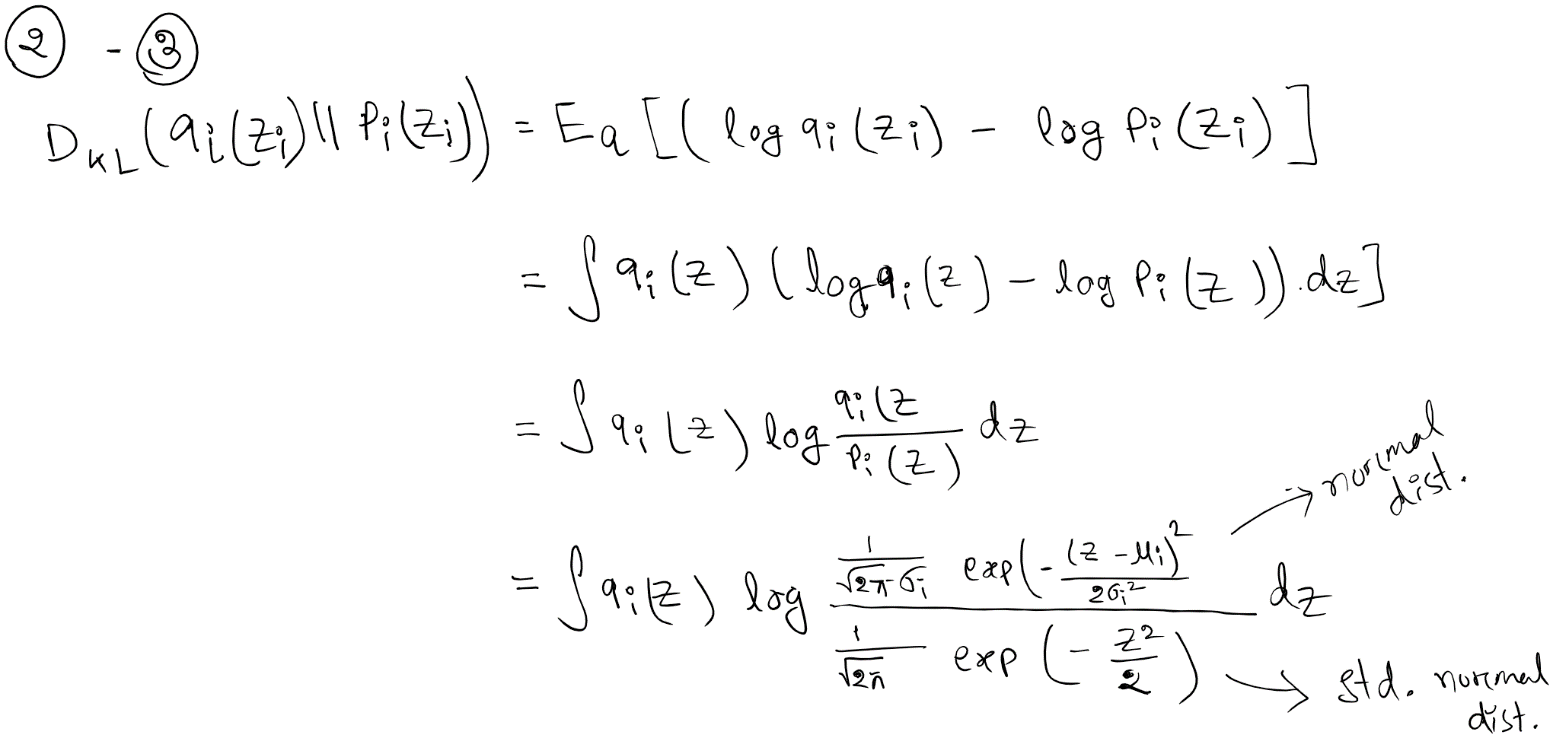 ② - ③
D_KL(q_i(z_i) || P_i(z_i)) = E_q [( log q_i(z_i) - log P_i(z_i) ]
= ∫ q_i(z) ( log q_i(z) - log P_i(z)).dz ]
= ∫ q_i(z) log \frac{q_i(z}{P_i(z)} dz
→ normal dist.
= ∫ q_i(z) log \frac{\frac{1}{\sqrt{2π} σ_i} exp(-\frac{(z-μ_i)^2}{2σ_i^2}}{\frac{1}{\sqrt{2π}} exp(-\frac{z^2}{2})} dz
→ std. normal dist.